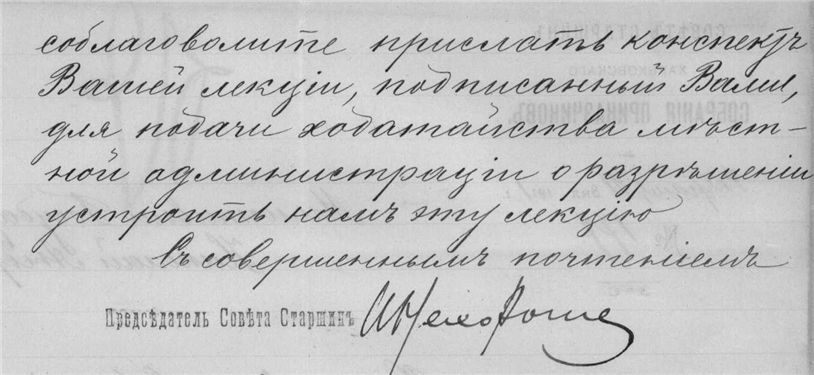 соблаговолите прислать конспектъ
Вашей лекціи, подписанный Вами,
для подачи ходатайства мѣст-
ной администраціи о разрѣшеніи
устроить намъ эту лекцію
Съ совершеннымъ почтеніемъ
Предсѣдатель Совѣта Старшинъ